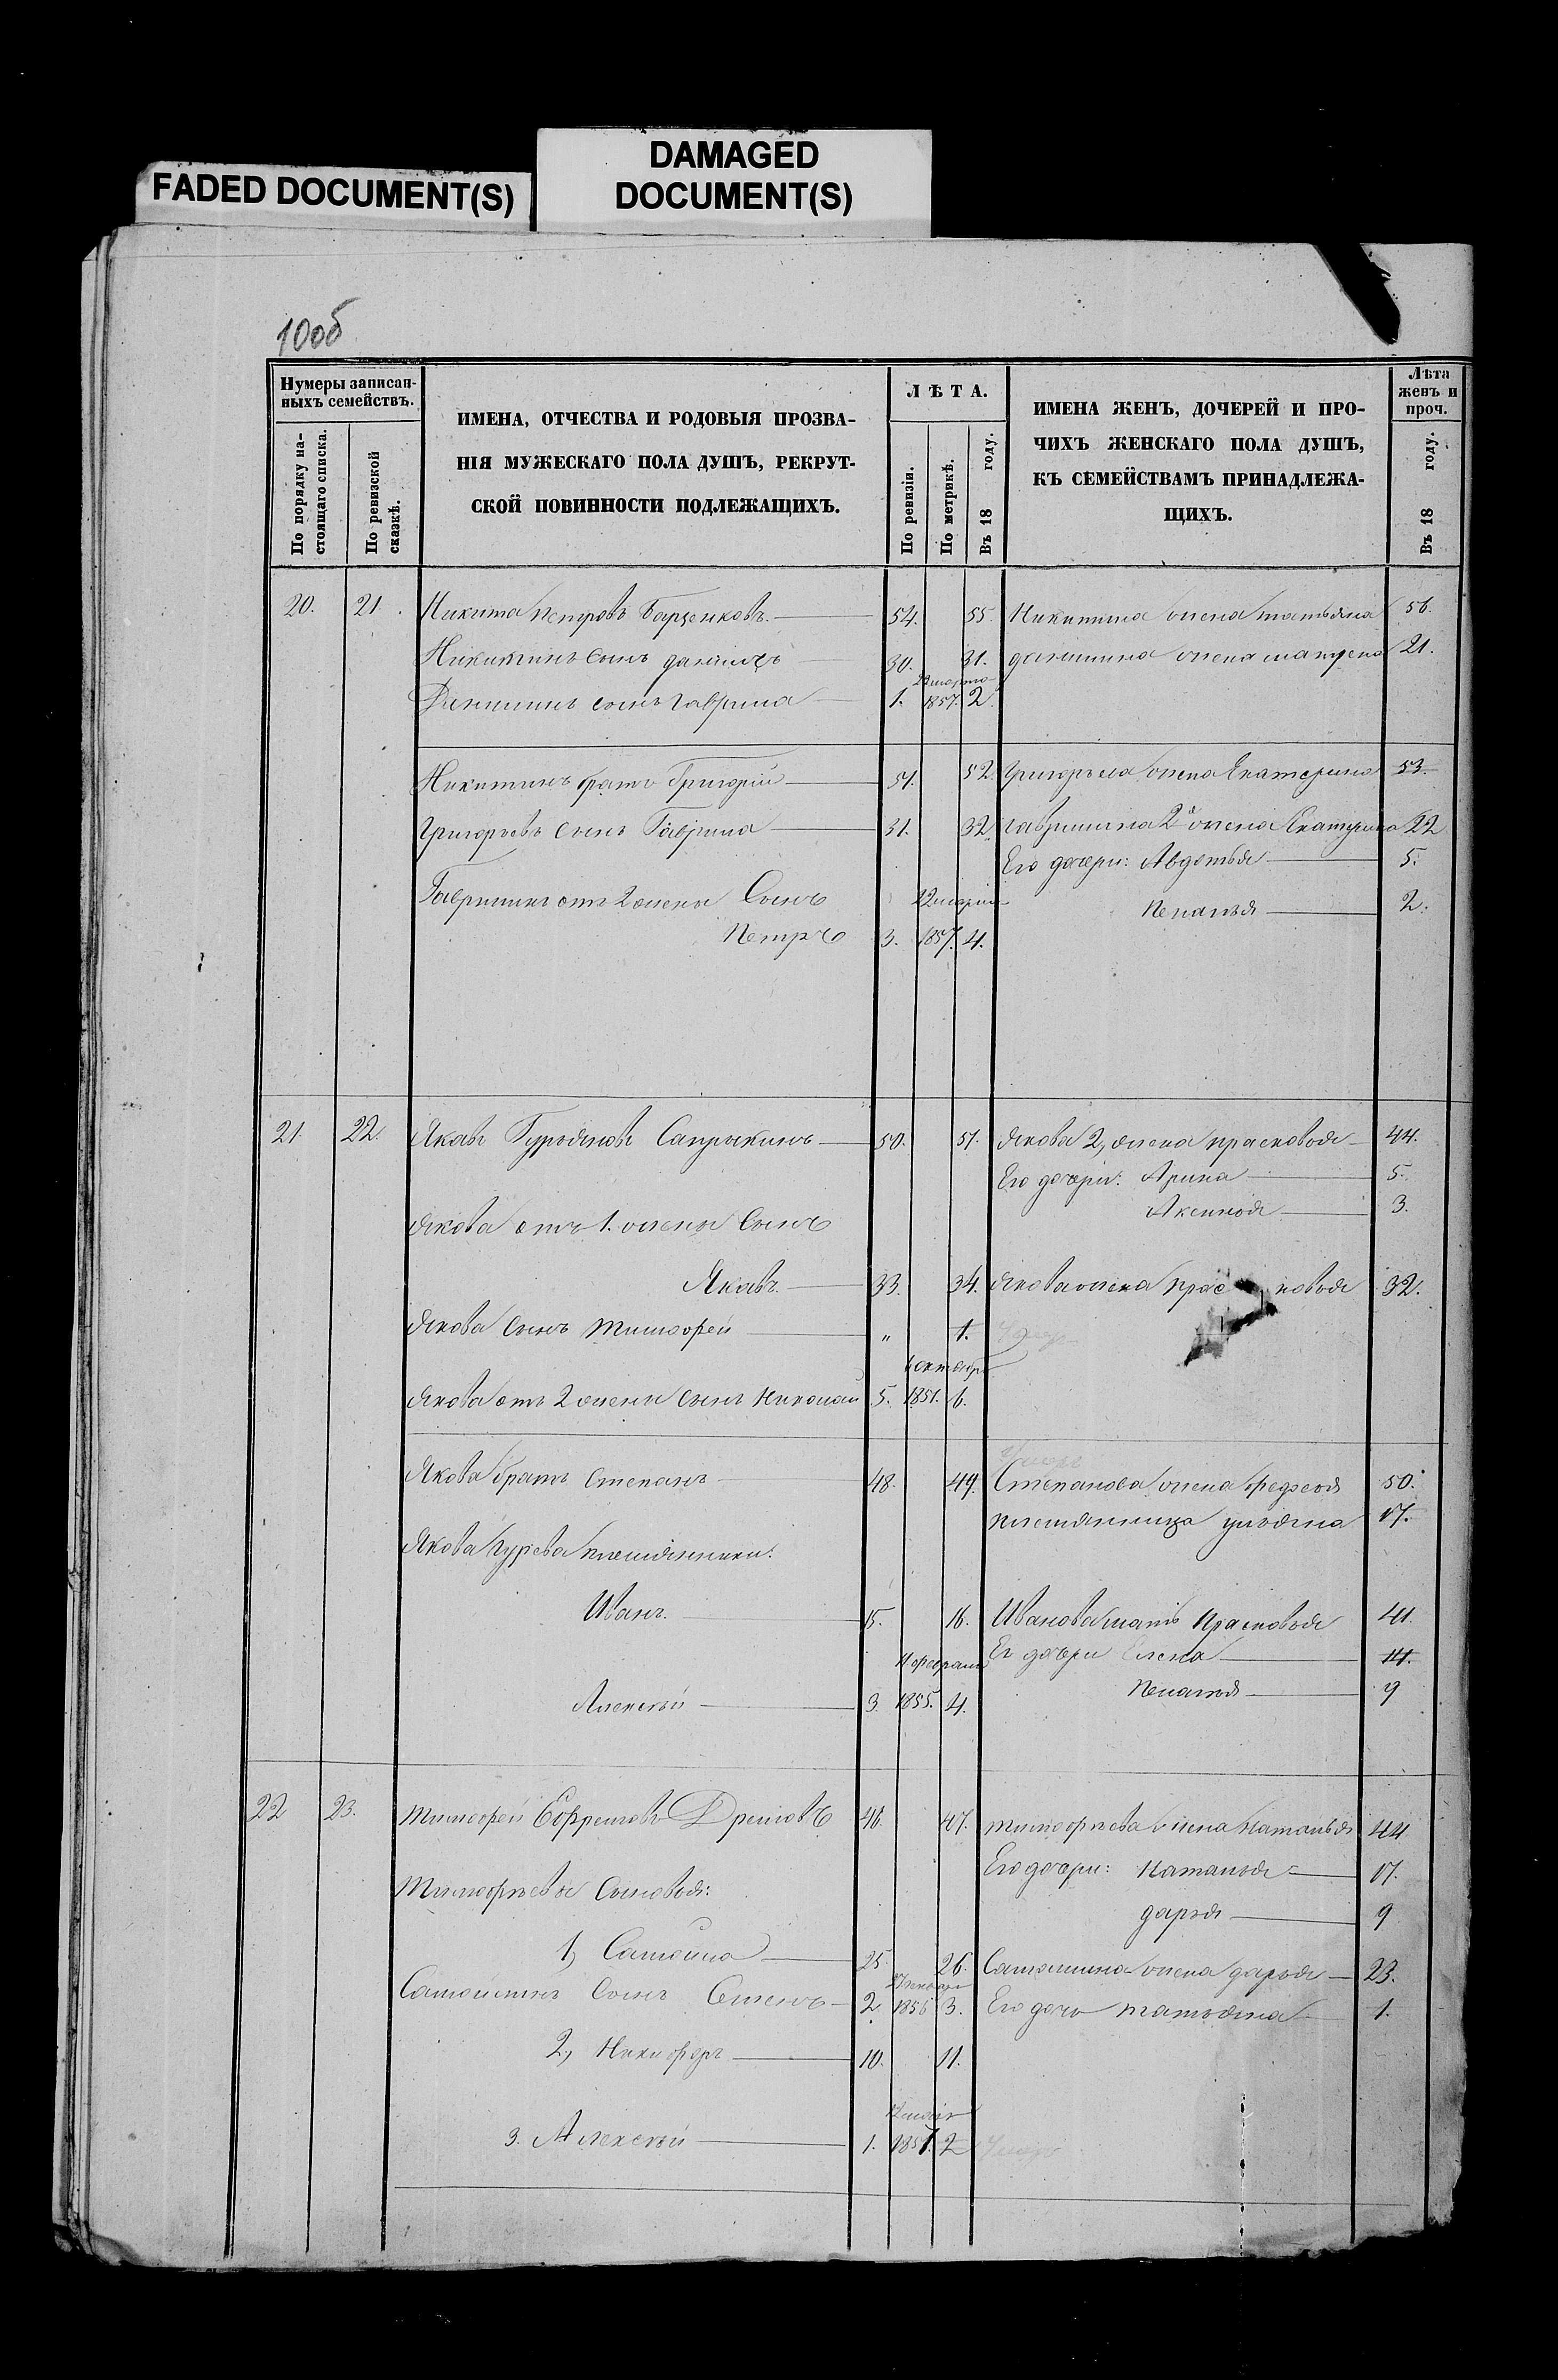 FADED DOCUMENT(S)
DAMAGED
DOCUMENT(S)
10об
Нумеры записан-
ныхъ семействъ.
По порядку на-
стоящаго списка.
По ревизской
сказкѣ.
ИМЕНА, ОТЧЕСТВА И РОДОВЫЯ ПРОЗВА-
НІЯ МУЖЕСКАГО ПОЛА ДУШЪ, РЕКРУТ-
СКОЙ ПОВИННОСТИ ПОДЛЕЖАЩИХЪ.
ЛѢТА.
По ревизіи.
По метрикѣ.
Въ 18 году.
ИМЕНА ЖЕНЪ, ДОЧЕРЕЙ И ПРО-
ЧИХЪ ЖЕНСКАГО ПОЛА ДУШЪ,
КЪ СЕМЕЙСТВАМЪ ПРИНАДЛЕЖА-
ЩИХЪ.
Лѣта
женъ и
проч.
Въ 18 году.
20. 21. Никита Петровъ Борщенковъ. 54. 55. Никитина жена татьяна 56.
Никитинъ сынъ данила 30. 31. данилина жена матрена 21.
22 марта
Данилинъ сынъ гаврила 1. 1857. 2.
Никитинъ братъ Григорій 51. 52. Григорьева жена Екатерина 53.
Григорьевъ сынъ Гаврила 31. 32. гаврилина 2я жена Екатерина 22
Его дочери: Авдотья 5.
Гаврилинъ отъ 2 жены Сынъ
Пелагья 2.
Петръ 3. 1857. 4.
21. 22. Яковъ Гурьяновъ Сапрыкинъ 50. 51. Якова 2, жена прасковья 44.
Его дочери: Арина 5.
Аксинья 3.
Якова отъ 1. жены Сынъ
Яковъ. 33. 34. Якова жена прасковья 32.
Якова Сынъ Тимофей „ 1.
6 октября
Якова отъ 2 жены сынъ Николай 5. 1851. 6.
Якова братъ Степанъ 48. 49. Степанова жена федосья 50.
племянница ульяна 17.
Якова Гурева племянники:
Иванъ. 15. 16. Иванова мать Прасковья 41.
Ея дочери Елена 14.
февраля
Пелагья 9
Алексѣй 3. 1855. 4.
22 23. Тимофей Ефремовъ 46. 47. тимофѣева жена Наталья 44
Его дочери: Наталья 17.
Тимофѣевы Сыновья:
дарья 9
1, Самойла 25. 26. Самойлина жена дарья 23.
Самойлинъ Сынъ Семенъ 2. 1856 3. Его дочь татьяна 1.
2, Никифоръ 10. 11.
3. Алексѣй 1. 1857. 2